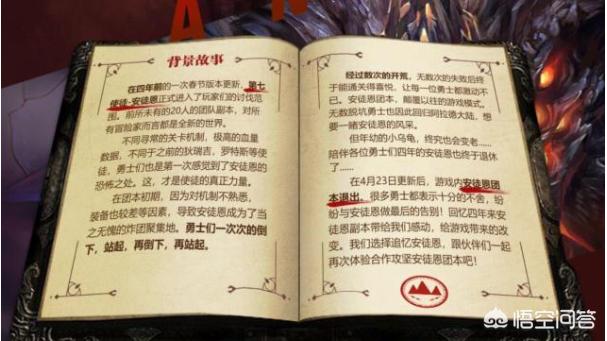 A
N
背景故事
在四年前的一次春节版本更新，第七
使徒-安徒恩正式进入了玩家们的讨伐范
围。前所未有的20人的团队副本，对所
有冒险家而言都是全新的世界。
不同寻常的关卡机制，极高的血量
数据，不同于之前的狄瑞吉、罗特斯等使
徒，勇士们也是第一次感觉到了安徒恩的
恐怖之处。这，才是使徒的真正力量。
在团本初期，因为对机制不熟悉，
装备也较差等因素，导致安徒恩成为了当
之无愧的炸团聚集地。勇士们一次次的倒
下，站起，再倒下，再站起。
经过数次的开荒，无数次的失败后终
于能通关得喜悦，让每一位勇士都激动不
已。安徒恩团本，颠覆以往的游戏模式。
无数脱坑勇士也因此回归阿拉德大陆，想
要一睹安徒恩的风采。
但年幼的小乌龟，终究也会变老......
陪伴各位勇士们四年的安徒恩也终于退休
了......
在4月23日更新后，游戏内安徒恩团
本退出。很多勇士都表示十分的不舍，纷
纷与安徒恩做最后的告别！回忆四年来安
徒恩副本带给我们感动，给游戏带来的改
变。我们选择追忆安徒恩，跟伙伴们一起
再次体验合作攻坚安徒恩团本吧！
悟空问答